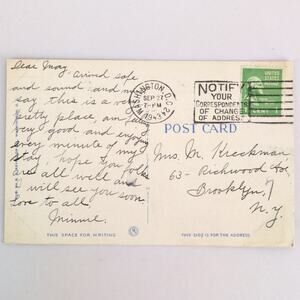 Dear May
Arrived safe
and sound and
say this is a very
pretty place, am
very good and enjoying
every minute of my
stay, hope you folks
is all well and
will see you soon
Love to all
Minnie.
WASHINGTON, D.C.
SEP 27
7-PM
1943
NOTIFY
YOUR
CORRESPONDENTS
OF CHANGE
OF ADDRESS
UNITED
STATES
POSTAGE
POST CARD
Mrs. M. Kreckman
63- Richwood
Brooklyn, 7
N.Y.
THIS SPACE FOR WRITING
THIS SIDE IS FOR THE ADDRESS